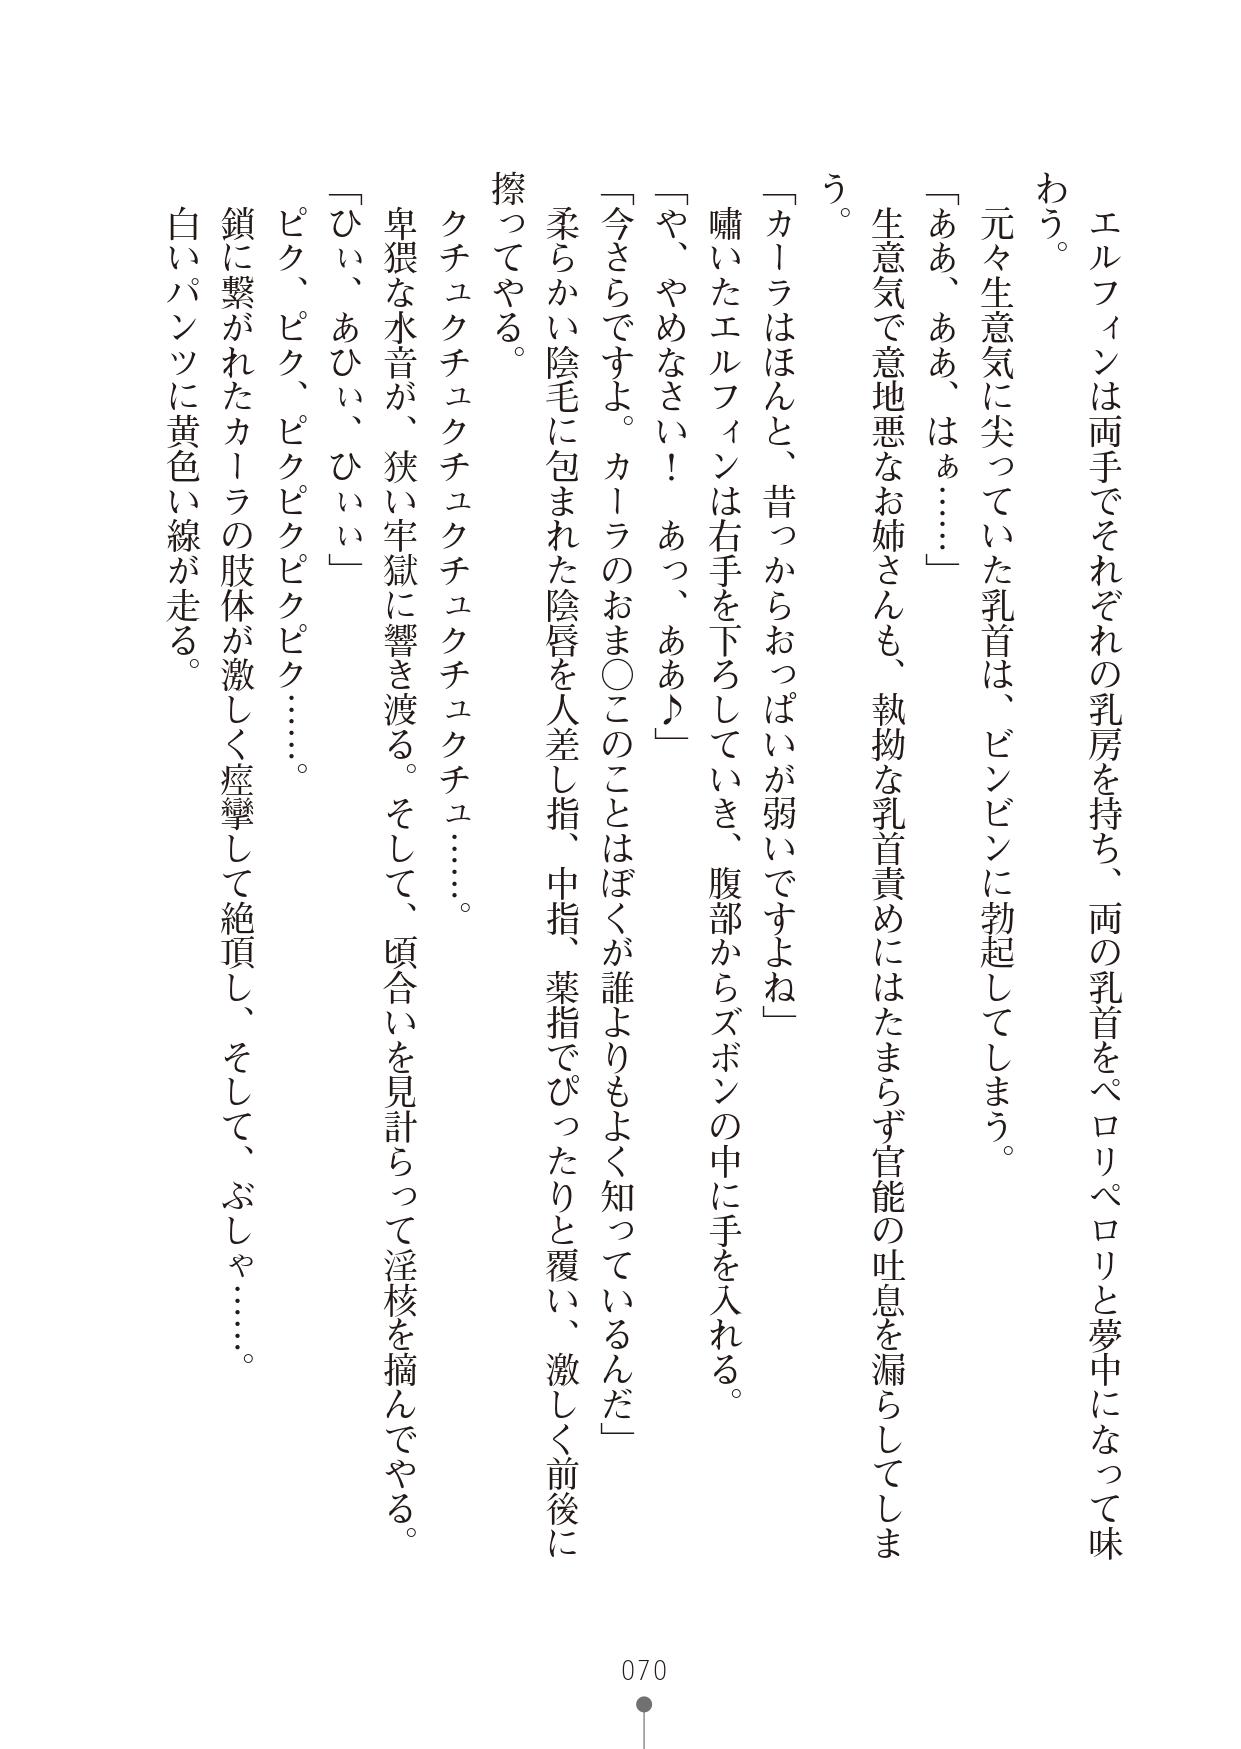 エルフィンは両手でそれぞれの乳房を持ち、両の乳首をペロリペロリと夢中になって味
わう。
元々生意気に尖っていた乳首は、ビンビンに勃起してしまう。
「ああ、ああ、はぁ……」
生意気で意地悪なお姉さんも、執拗な乳首責めにはたまらず官能の吐息を漏らしてしま
う。
「カーラはほんと、昔っからおっぱいが弱いですよね」
嘯いたエルフィンは右手を下ろしていき、腹部からズボンの中に手を入れる。
「や、やめなさい！　あっ、ああ♪」
「今さらですよ。カーラのおま〇このことはぼくが誰よりもよく知っているんだ」
柔らかい陰毛に包まれた陰唇を人差し指、中指、薬指でぴったりと覆い、激しく前後に
擦ってやる。
クチュクチュクチュクチュクチュクチュ……。
卑猥な水音が、狭い牢獄に響き渡る。そして、頃合いを見計らって淫核を摘んでやる。
「ひぃ、あひぃ、ひぃぃ」
ピク、ピク、ピクピクピクピク……。
鎖に繋がれたカーラの肢体が激しく痙攣して絶頂し、そして、ぶしゃ……。
白いパンツに黄色い線が走る。
070